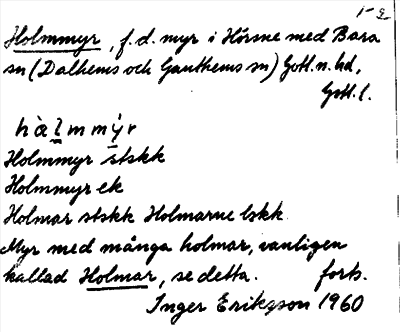 Holmmyr, f.d. myr i Hörsne med Bara
sn (Dalhems och Ganthems sn) Gotl. n. hd,
Gotl. l.
hàlmmýr
Holmmyr stskk
Holmmyr ek
Holmar stskk Holmarne lskk
Myr med många holmar, vanligen
kallad Holmar, se detta. forts.
Inger Erikzson 1960